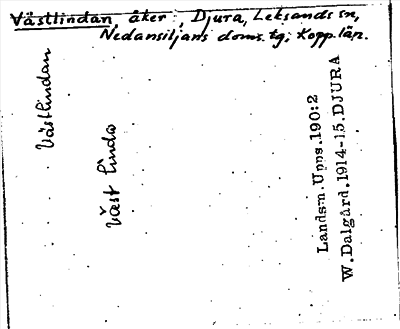 Västlindan, åker, Djura, Leksands sn,
Nedansiljans doms. tg; Kopp. län.
Västlindan
Väst linda
Landsm. Upps. 190:2
W. Dalgård. 1914-15. DJURA